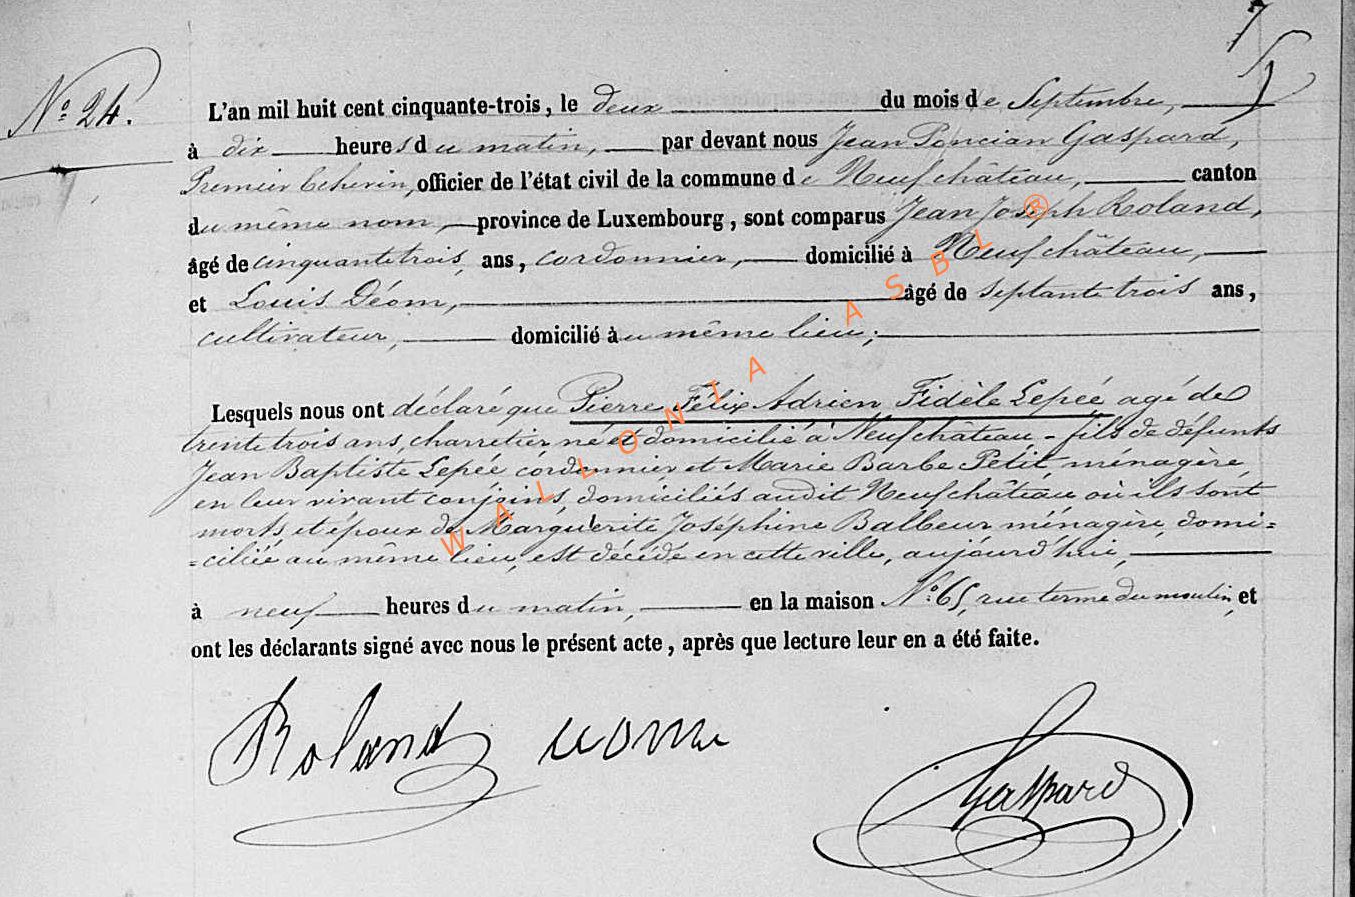 7
N° 24.
L'an mil huit cent cinquante-trois, le deux du mois de Septembre,
à dix heures du matin, par devant nous Jean Poncian Gaspard,
Premier Echevin, officier de l'état civil de la commune de Neufchâteau, canton
du même nom, province de Luxembourg, sont comparus Jean Joseph Roland,
âgé de cinquante trois ans, cordonnier, domicilié à Neufchâteau,
et Louis Déom, âgé de septante trois ans,
cultivateur, domicilié au même lieu;
Lesquels nous ont déclaré que Pierre Félix Adrien Fidèle Lepée agé de
trente trois ans, charretier né et domicilié à Neufchâteau - fils de défunts
Jean Baptiste Lepée cordonnier et Marie Barbe Petit ménagère,
en leur vivant conjoins, domiciliés audit Neufchâteau où ils sont
morts, et époux de Marguerite Joséphine Balbeur ménagère, domi=
=ciliée au même lieu, est décédé en cette ville, aujourd'hui,
à neuf heures du matin, en la maison N° 65, rue terme du moulin, et
ont les déclarants signé avec nous le présent acte, après que lecture leur en a été faite.
Roland Gaspard
WALLONIA ASBL ®